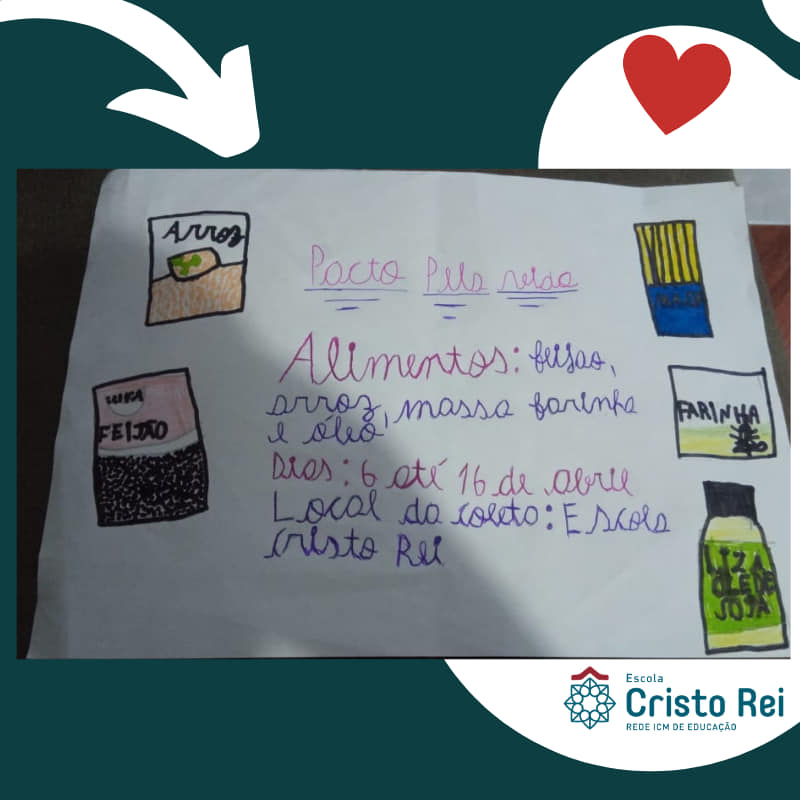 Arroz
Pacto Pela vida
Alimentos: feijao,
arroz, massa farinha
e óleo
Dias: 6 até 16 de abril
Local da coleta: Escola
Cristo Rei
FEIJÃO
FARINHA
LIZA
OLEO DE
SOJA
Escola
Cristo Rei
REDE ICM DE EDUCAÇÃO